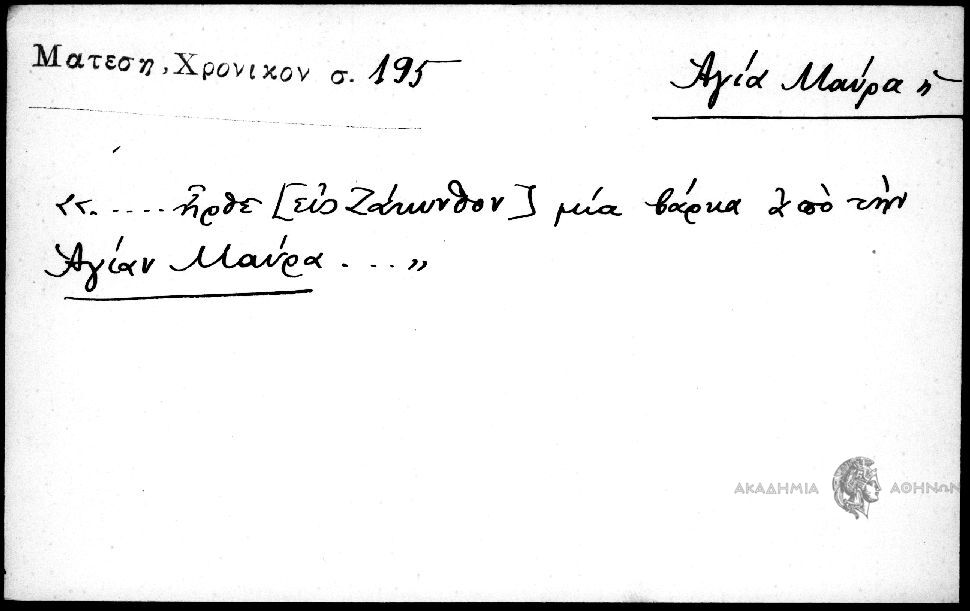 Ματεση, Χρονικον σ. 195
Ἁγία Μαύρα ἡ
«..... ἦρθε [εἰς Ζάκυνθον] μία βάρκα ἀπὸ τὴν
Ἁγίαν Μαύρα ...»
ΑΚΑΔΗΜΙΑ ΑΘΗΝΩΝ